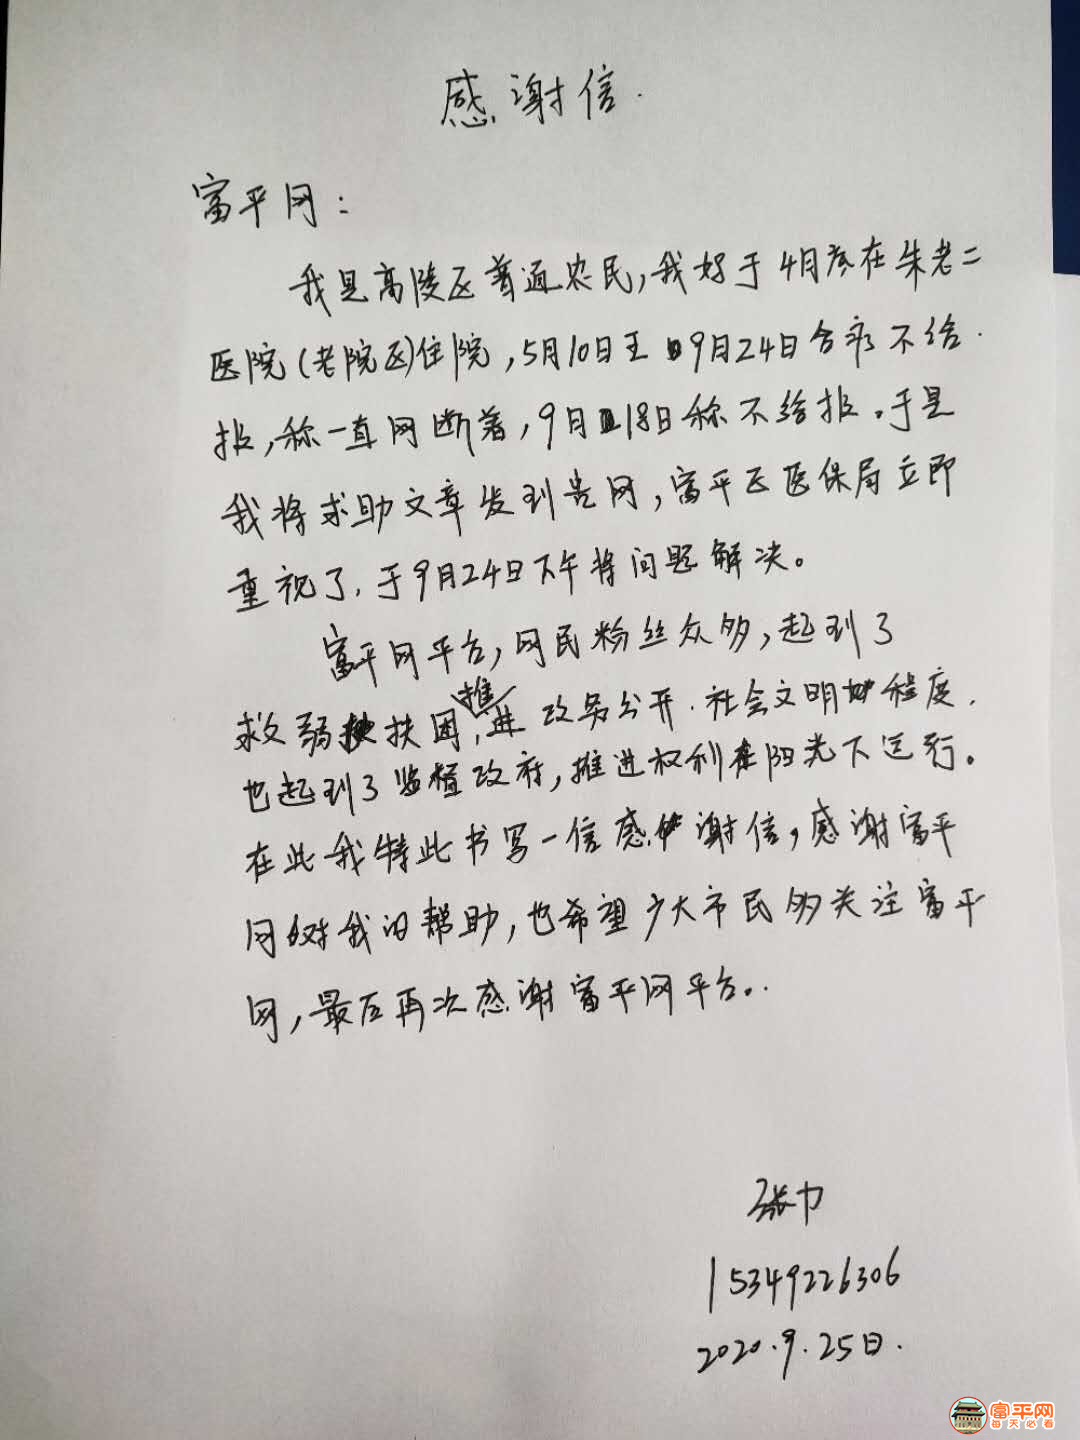 感谢信.
富平网：
我是高陵区普通农民,我妈于4月底在朱老二
医院(老院区)住院,5月10日至9月24日合疗不给
报,称一直网断着,9月18日称不给报。于是
我将求助文章发到贵网,富平区医保局立即
重视了,于9月24日下午将问题解决。
富平网平台,网民粉丝众多,起到了
救弱扶困,推进政务公开.社会文明程度.
也起到了监督政府,推进权利在阳光下运行。
在此我特此书写一信感谢信,感谢富平
网对我的帮助,也希望广大市民多关注富平
网,最后再次感谢富平网平台。
张力
15349226306
2020.9.25日.
富平网
每天必看